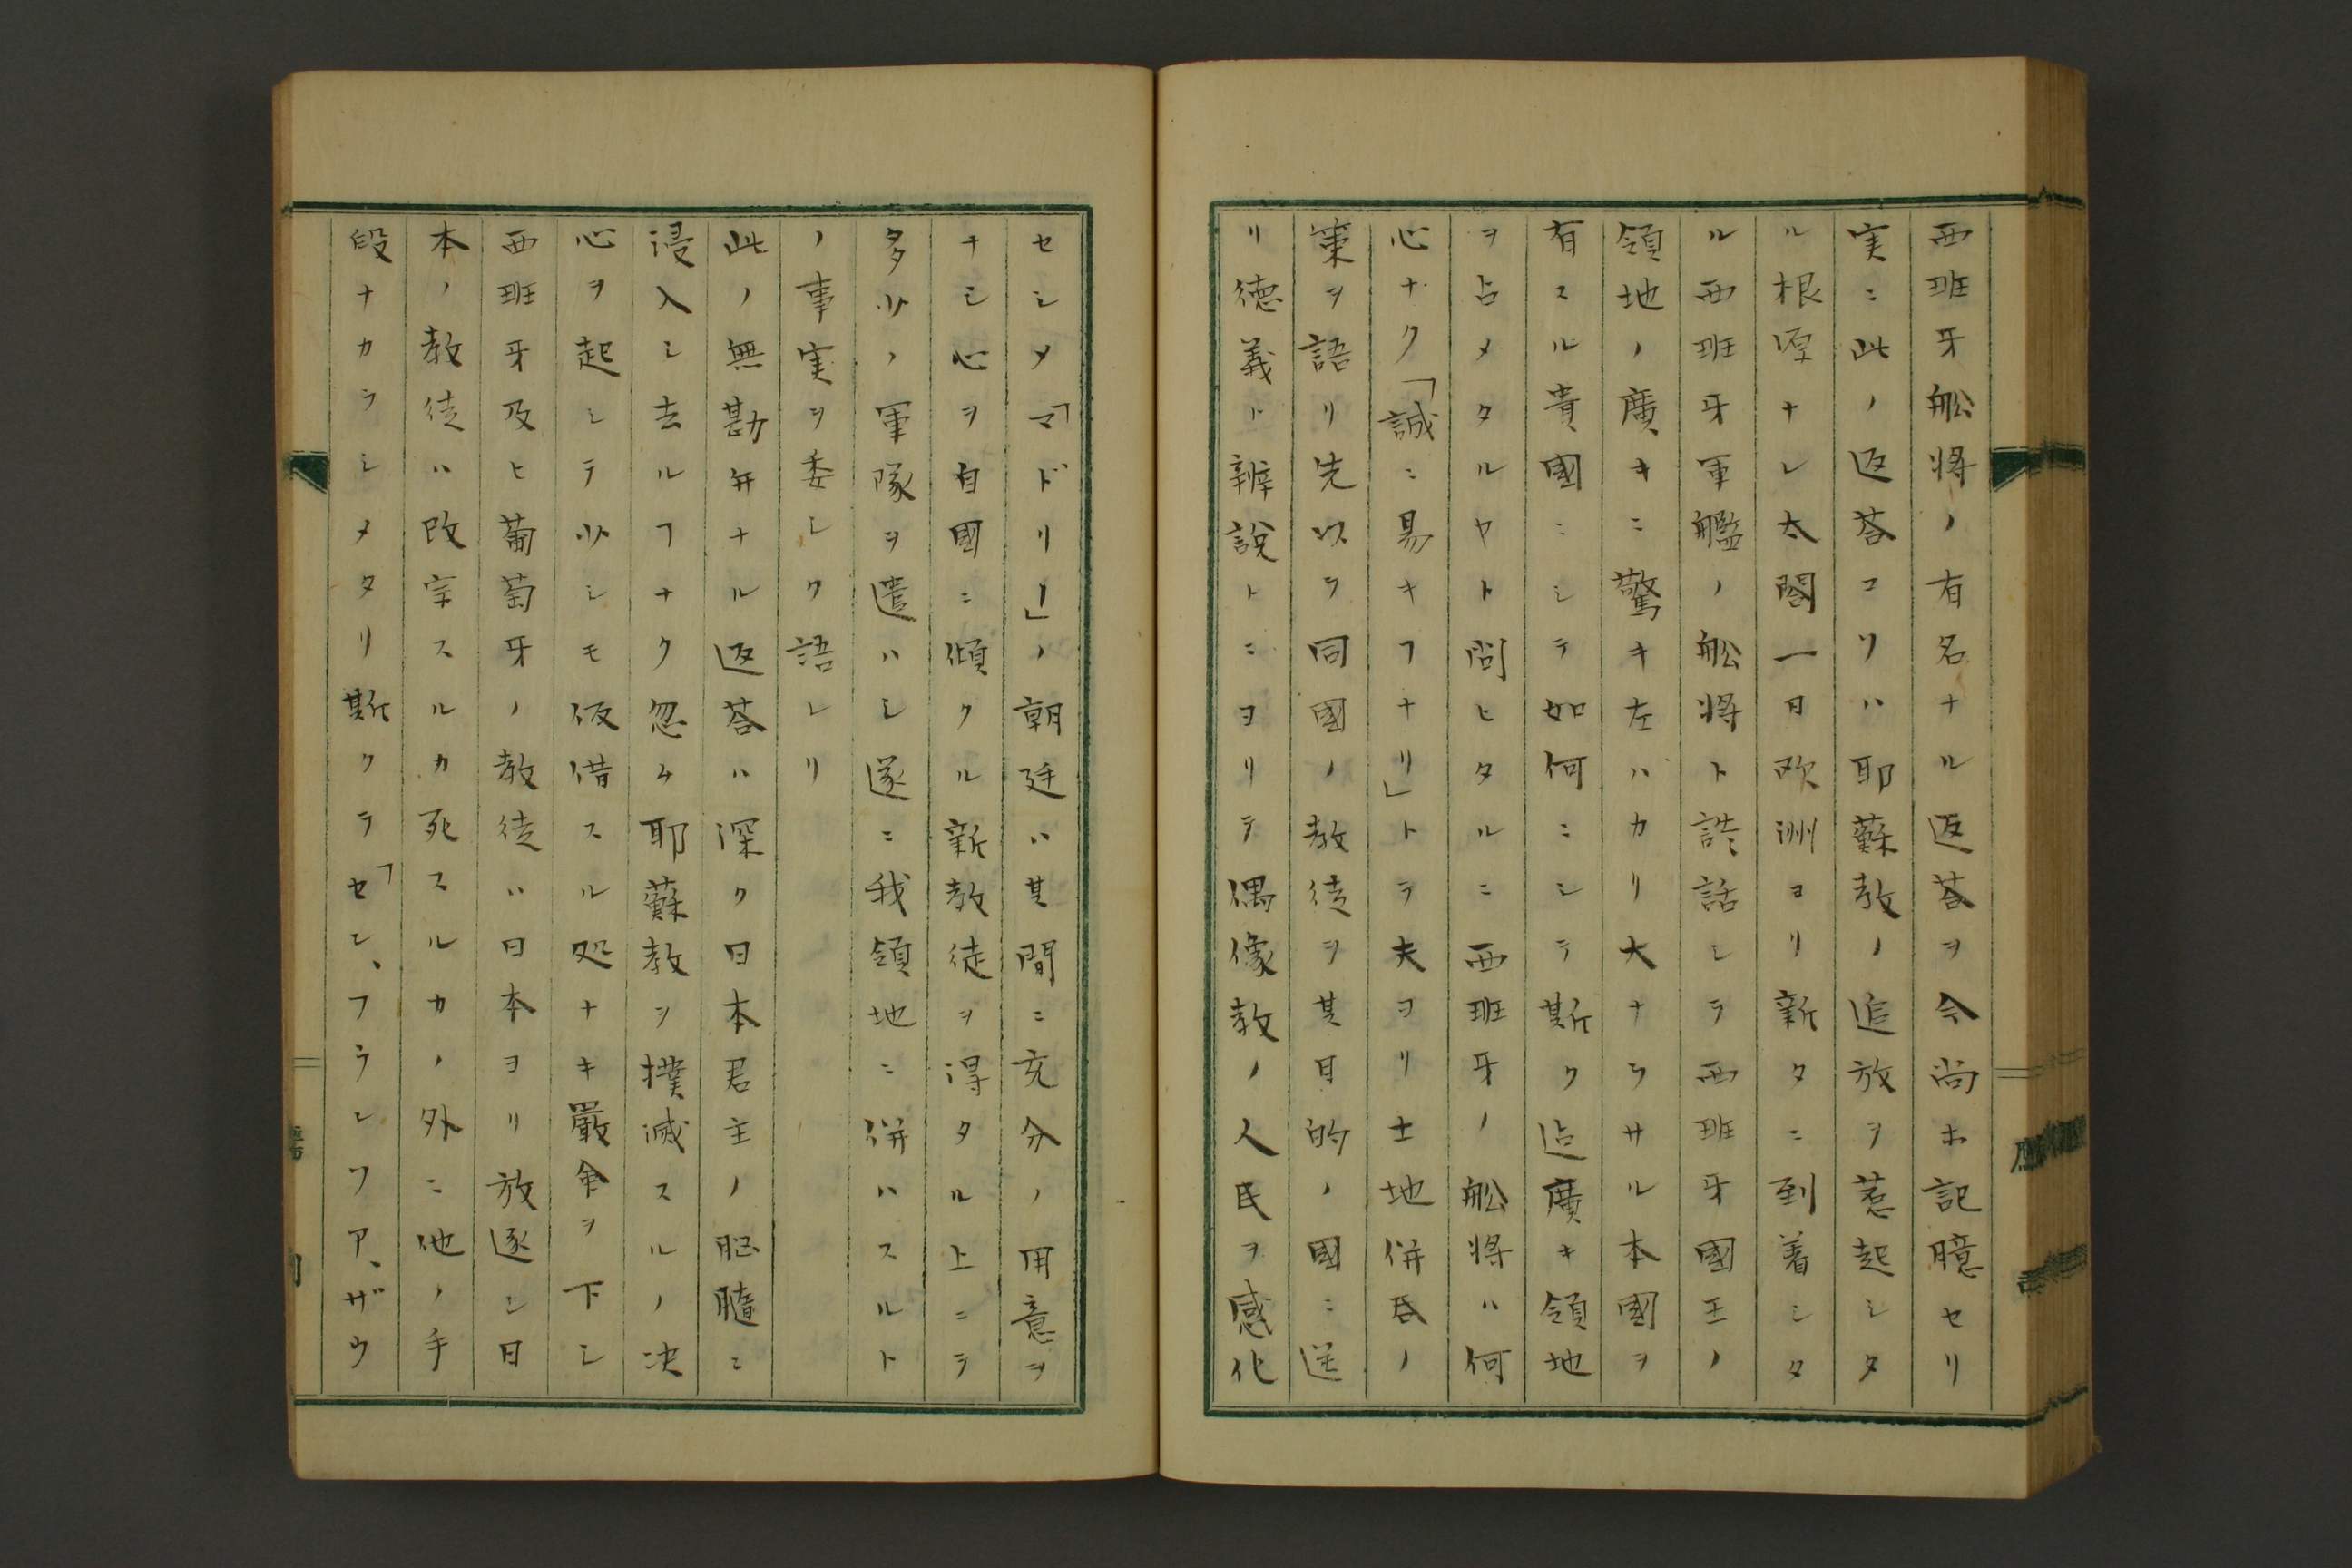 西班牙舩将ノ有名ナル返荅ヲ今尚ホ記臆セリ
実ニ此ノ返荅コソハ耶蘇教ノ追放ヲ惹起シタ
ル根原ナレ太閤一日欧洲ヨリ新タニ到着シタ
ル西班牙軍艦ノ舩将ト談話シテ西班牙國王ノ
領地ノ廣キニ驚キ左ハカリ大ナラサル本國ヲ
有スル貴國ニシテ如何ニシテ斯ク迠廣キ領地
ヲ占メタルヤト問ヒタルニ西班牙ノ舩将ハ何
心ナク「誠ニ易キヿナリ」トテ夫ヨリ土地併呑ノ
策ヲ語リ先以テ同國ノ教徒ヲ其目的ノ國ニ送
リ徳義ト辨説トニヨリテ偶像教ノ人民ヲ感化
セシメ「マドリー」ノ朝廷ハ其間ニ充分ノ用意ヲ
ナシ心ヲ自國ニ傾クル新教徒ヲ得タル上ニテ
多少ノ軍隊ヲ遣ハシ遂ニ我領地ニ併ハスルト
ノ事実ヲ委シク語レリ
此ノ無勘弁ナル返荅ハ深ク日本君主ノ脳髄ニ
浸入シ去ルヿナク忽ケ耶蘇教ヲ撲滅スルノ决
心ヲ起シテ少シモ仮借スル処ナキ嚴令ヲ下シ
西班牙及ヒ葡萄牙ノ教徒ハ日本ヨリ放逐シ日
本ノ教徒ハ改宗スルカ死スルカノ外ニ他ノ手
段ナカラシメタリ斯クテ「セン、フランソア、ザウ